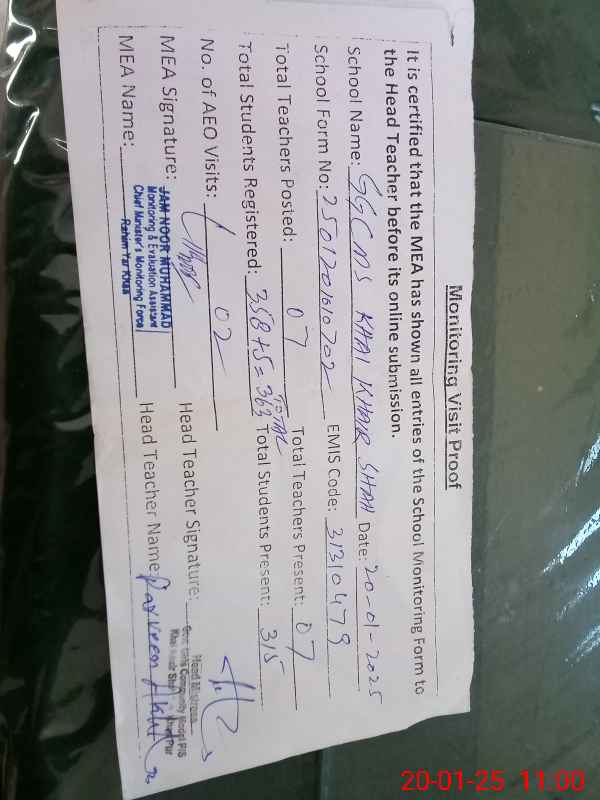 Monitoring Visit Proof
It is certified that the MEA has shown all entries of the School Monitoring Form to
the Head Teacher before its online submission.
School Name: GGCMS KHAI KHAIR SHAH Date: 20-01-2025
School Form No: 2501201010702 EMIS Code: 31310479
Total Teachers Posted: 07 Total Teachers Present: 07
Total Students Registered: 358+5=363 TOTAL Total Students Present: 315
No. of AEO Visits: 02
MEA Signature: Head Teacher Signature:
MEA Name: Head Teacher Name: Parveen Akhtar
JAM NOOR MUHAMMAD
Monitoring & Evaluation Assistant
Chief Minister's Monitoring Force
Rahim Yar Khan
Head Mistress
Govt. Girls Community Model P/S
Khai Khair Shah
20-01-25 11:00